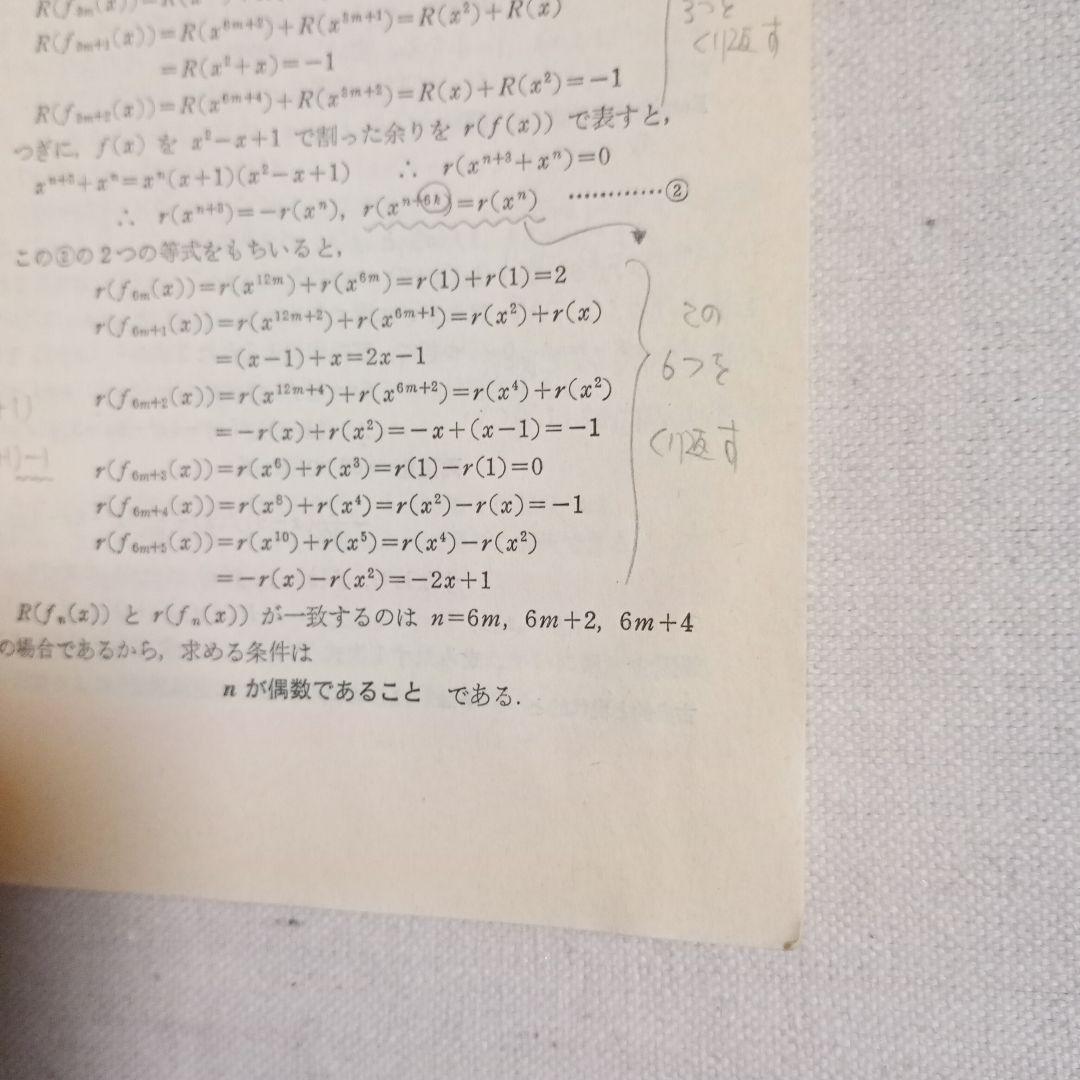 R(f₃ₘ(x))=R(x
R(f₃ₘ₊₁(x))=R(x⁶ᵐ⁺²)+R(x³ᵐ⁺¹)=R(x²)+R(x)
=R(x²+x)=−1
R(f₃ₘ₊₂(x))=R(x⁶ᵐ⁺⁴)+R(x³ᵐ⁺²)=R(x)+R(x²)=−1
つぎに, f(x) を x²−x+1 で割った余りを r(f(x)) で表すと,
xⁿ⁺³+xⁿ=xⁿ(x+1)(x²−x+1) ∴ r(xⁿ⁺³+xⁿ)=0
∴ r(xⁿ⁺³)=−r(xⁿ), r(xⁿ⁺⁶ᵏ)=r(xⁿ) …………②
この②の2つの等式をもちいると,
r(f₆ₘ(x))=r(x¹²ᵐ)+r(x⁶ᵐ)=r(1)+r(1)=2
r(f₆ₘ₊₁(x))=r(x¹²ᵐ⁺²)+r(x⁶ᵐ⁺¹)=r(x²)+r(x)
=(x−1)+x=2x−1
r(f₆ₘ₊₂(x))=r(x¹²ᵐ⁺⁴)+r(x⁶ᵐ⁺²)=r(x⁴)+r(x²)
=−r(x)+r(x²)=−x+(x−1)=−1
r(f₆ₘ₊₃(x))=r(x⁶)+r(x³)=r(1)−r(1)=0
r(f₆ₘ₊₄(x))=r(x⁸)+r(x⁴)=r(x²)−r(x)=−1
r(f₆ₘ₊₅(x))=r(x¹⁰)+r(x⁵)=r(x⁴)−r(x²)
=−r(x)−r(x²)=−2x+1
R(fₙ(x)) と r(fₙ(x)) が一致するのは n=6m, 6m+2, 6m+4
の場合であるから, 求める条件は
n が偶数であること である.
3つを
くり返す
この
6つを
くり返す